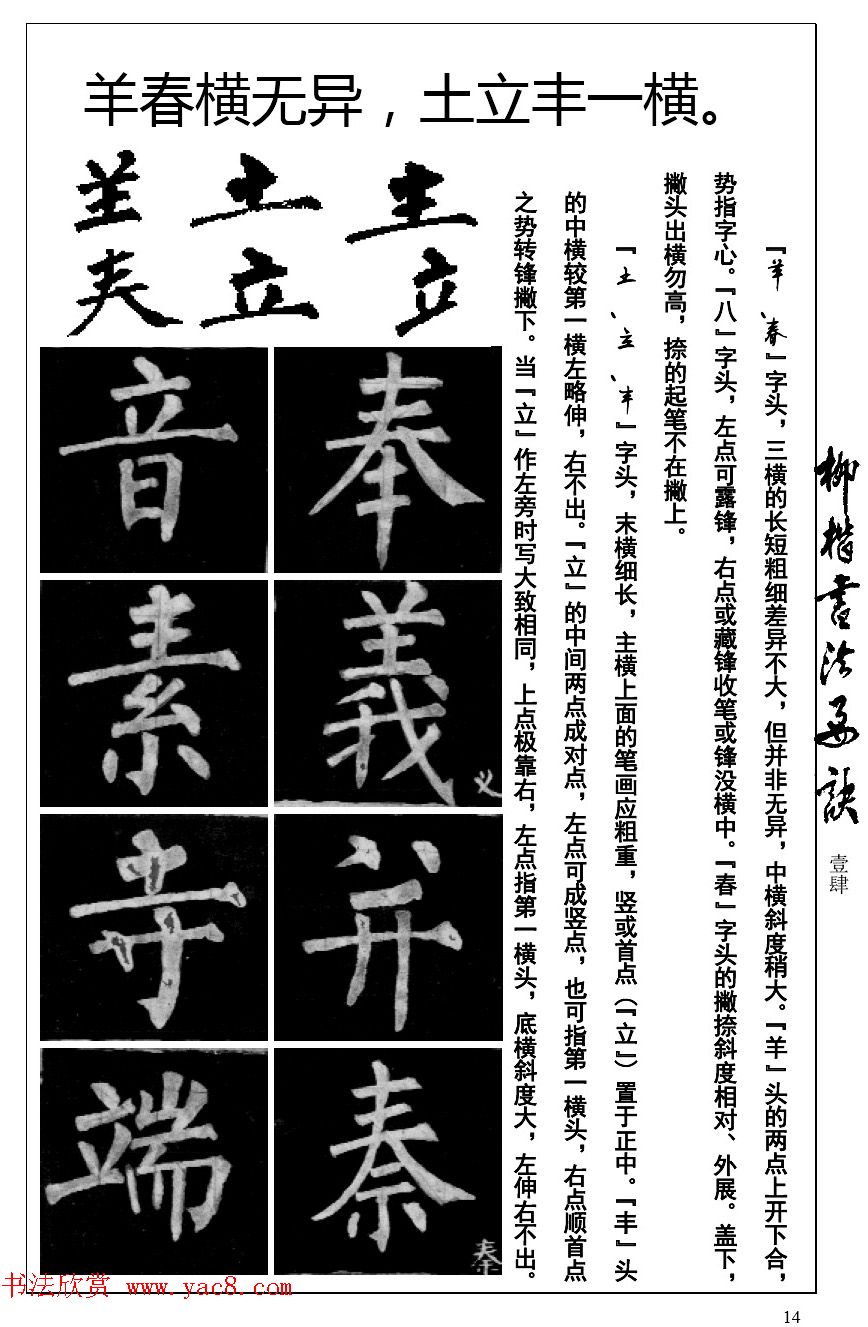 羊春横无异，土立丰一横。
『羊、春』字头，三横的长短粗细差异不大，但并非无异，中横斜度稍大。『羊』头的两点上开下合，
势指字心。『八』字头，左点可露锋，右点或藏锋收笔或锋没横中。『春』字头的撇捺斜度相对、外展。盖下，
撇头出横勿高，捺的起笔不在撇上。
『土、立、丰』字头，末横细长，主横上面的笔画应粗重，竖或首点（『立』）置于正中。『丰』头
的中横较第一横左略伸，右不出。『立』的中间两点成对点，左点可成竖点，也可指第一横头，右点顺首点
之势转锋撇下。当『立』作左旁时写大致相同，上点极靠右，左点指第一横头，底横斜度大，左伸右不出。
土
立
立
奉
音
義
义
素
并
寺
秦
秦
端
柳楷书法要诀
壹肆
书法欣赏 www.yac8.com
14